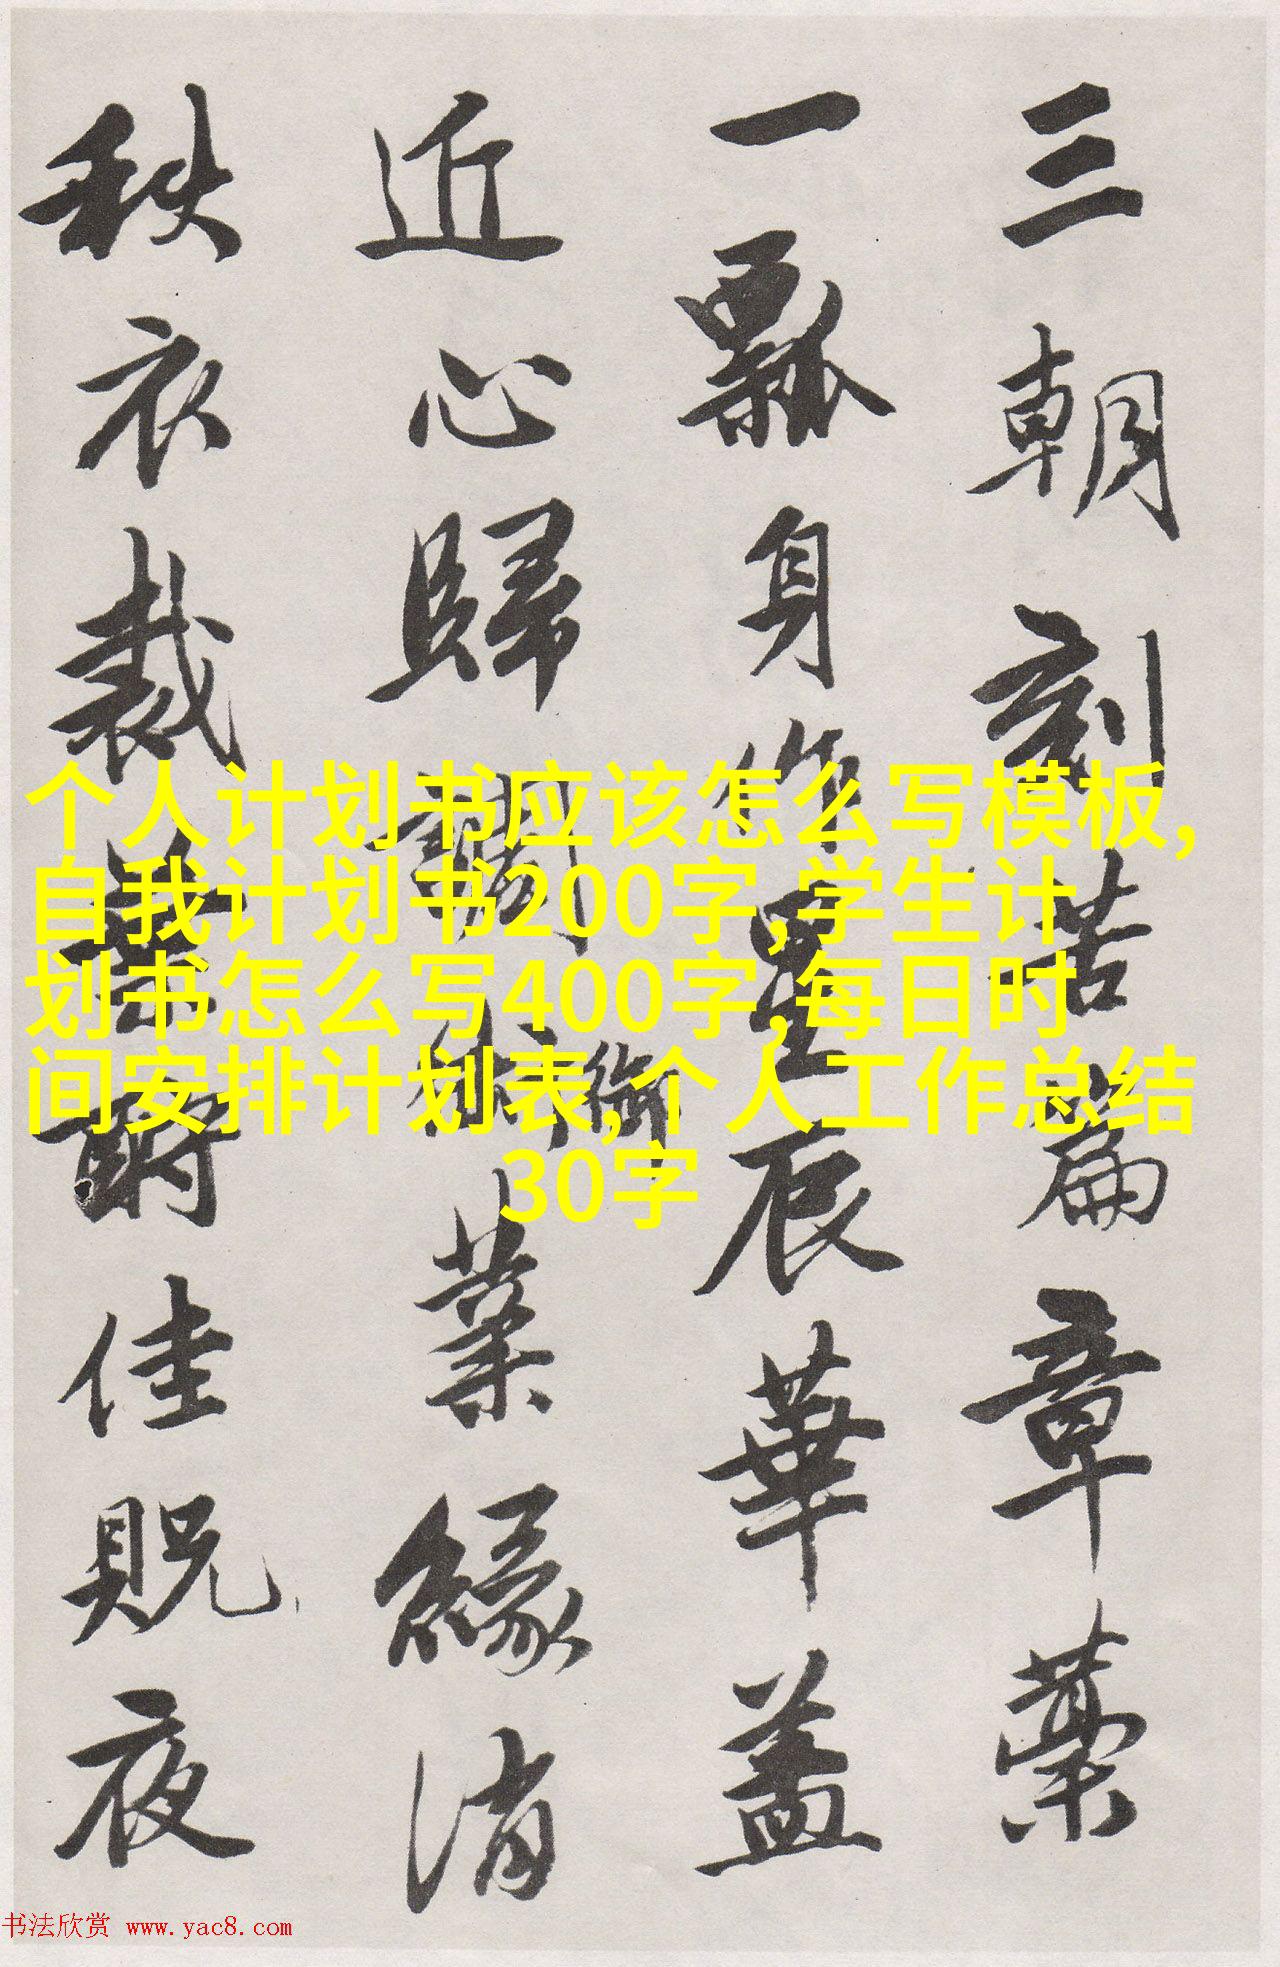 三朝刻苦篇章藁
一瓢身作星辰華蓋
近心歸調林衙葉緣消
秩衣裁葉酹佳貺夜
个人计划书应该怎么写模板,
自我计划书200字,学生计
划书怎么写400字,每日时
间安排计划表,个人工作总结
30字
书法欣赏 www.yac8.com